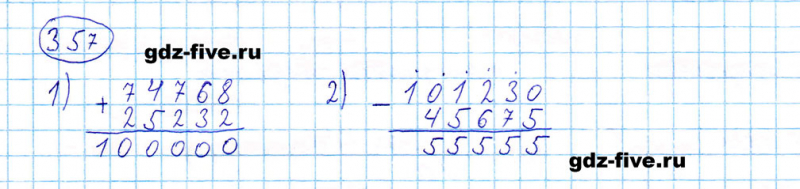 357
gdz-five.ru
1) + 74768
25232
100000
2) - 101230
45675
55555
gdz-five.ru